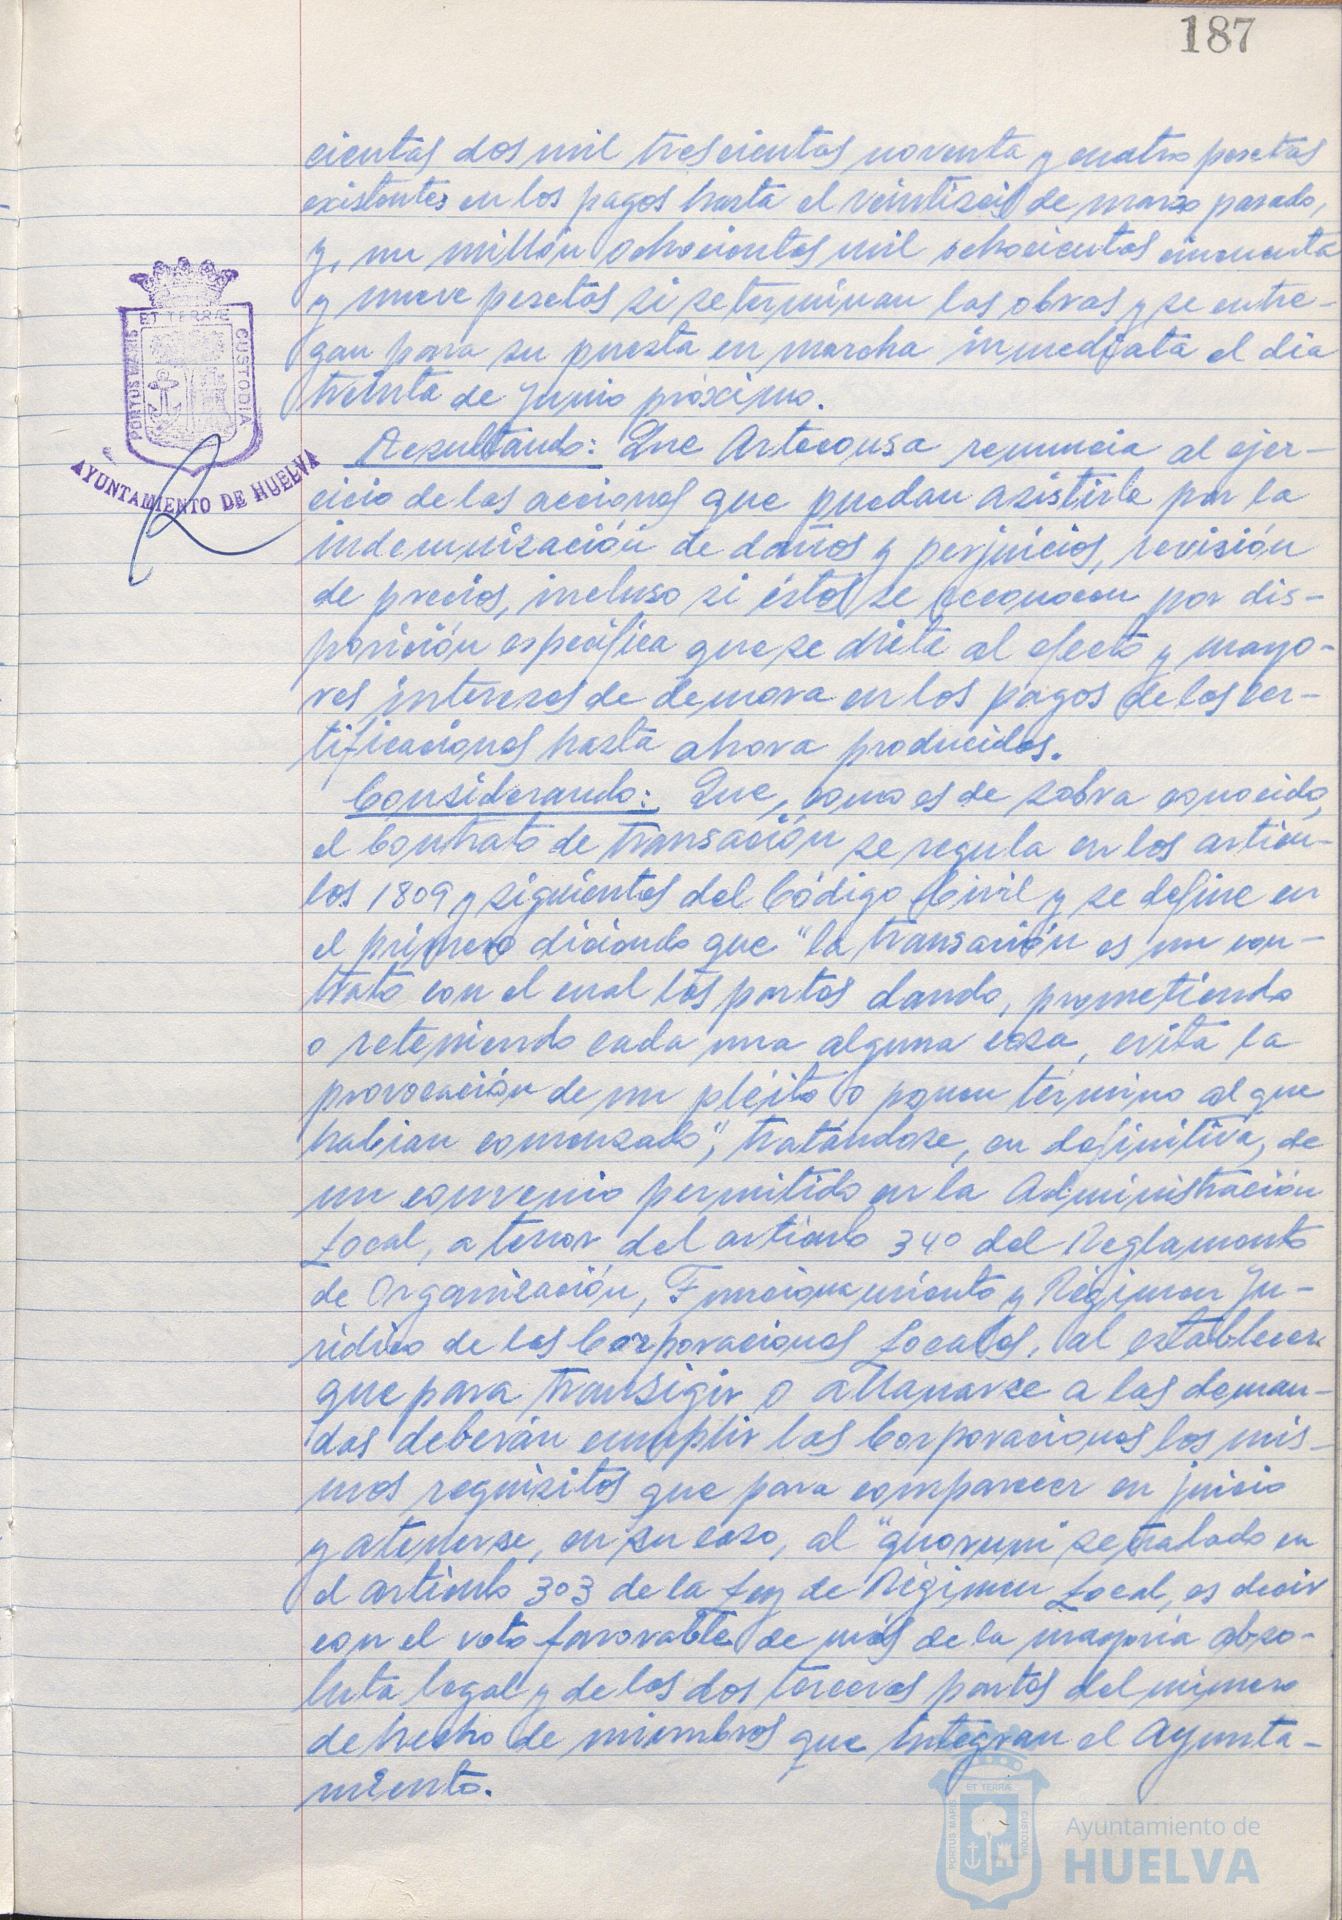 187
cientas dos mil trescientas noventa y cuatro pesetas
existentes en los pagos hasta el veintiseis de marzo pasado,
y, un millón ochocientas mil ochocientas cincuenta
y nueve pesetas si se terminan las obras y se entre-
gan para su puesta en marcha inmediata el dia
treinta de Junio próximo.
Resultando: Que Artecousa renuncia al ejer-
cicio de las acciones que puedan asistirle por la
indemnización de daños y perjuicios, revisión
de precios, incluso si éstos se reconocen por dis-
posición específica que se dicte al efecto y mayo-
res intereses de demora en los pagos de las cer-
tificaciones hasta ahora producidas.
Considerando: Que, como es de sobra conocido,
el Contrato de transación se regula en los artícu-
los 1809 y siguientes del Código Civil y se define en
el primero diciendo que "la transación es un con-
trato con el cual las partes dando, prometiendo
o reteniendo cada una alguna cosa, evita la
provocación de un pleito o ponen término al que
habían comenzado", tratándose, en definitiva, de
un convenio permitido en la Administración
Local, a tenor del artículo 340 del Reglamento
de Organización, Funcionamiento y Régimen Ju-
rídico de las Corporaciones Locales, al establecer
que para transigir o allanarse a las deman-
das deberán cumplir las Corporaciones los mis-
mos requisitos que para comparecer en juicio
y atenerse, en su caso, al "quorum" señalado en
el artículo 303 de la Ley de Régimen Local, es decir
con el voto favorable de más de la mayoría abso-
luta legal y de las dos terceras partes del número
de hecho de miembros que integran el Ayunta-
miento.
ET TERRÆ
PORTUS MARIS
CUSTODIA
AYUNTAMIENTO DE HUELVA
ET TERRÆ
PORTUS MARIS
CUSTODIA
Ayuntamiento de
HUELVA